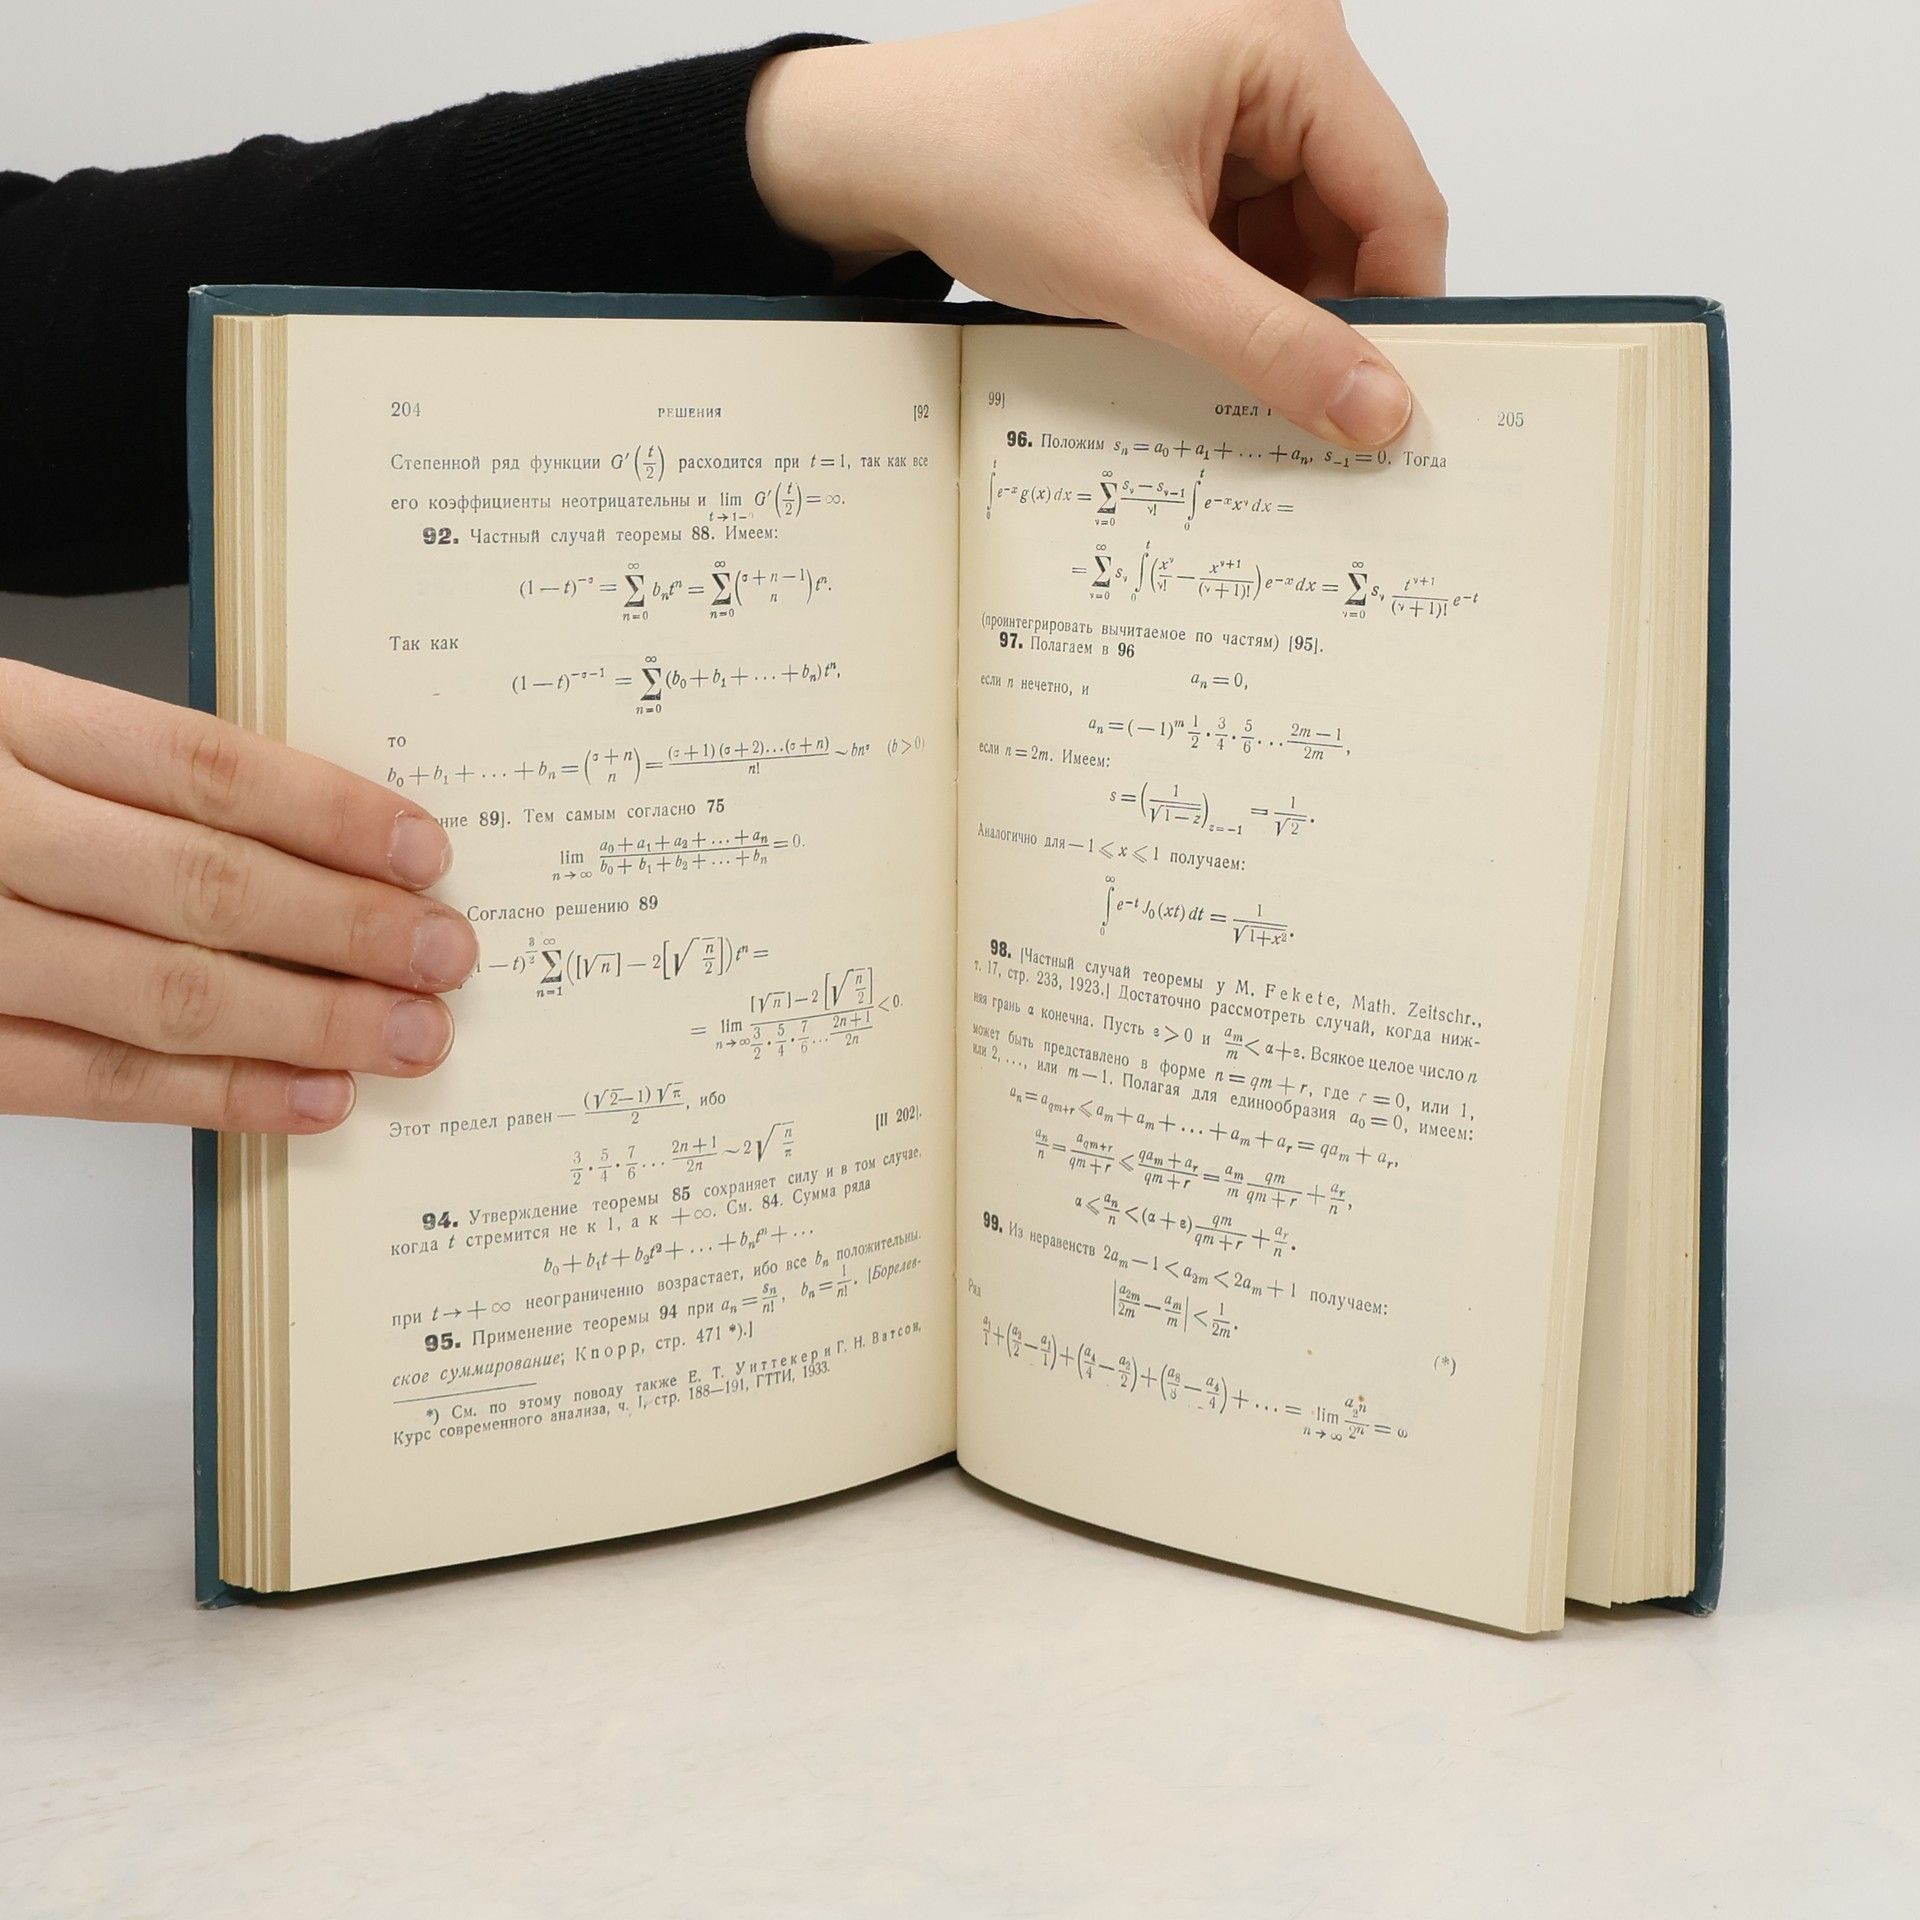 204 РЕШЕНИЯ [92
Степенной ряд функции G′(t/2) расходится при t = 1, так как все
его коэффициенты неотрицательны и lim t→1− G′(t/2) = ∞.
92. Частный случай теоремы 88. Имеем:
(1 − t)^{−σ} = ∑_{n=0}^{∞} bₙtⁿ = ∑_{n=0}^{∞} (σ + n − 1 / n) tⁿ.
Так как
(1 − t)^{−σ−1} = ∑_{n=0}^{∞} (b₀ + b₁ + ... + bₙ) tⁿ,
то
b₀ + b₁ + ... + bₙ = (σ + n / n) = (σ + 1)(σ + 2)...(σ + n) / n! ∼ bn^σ (b > 0)
ние 89]. Тем самым согласно 75
lim n→∞ (a₀ + a₁ + a₂ + ... + aₙ) / (b₀ + b₁ + b₂ + ... + bₙ) = 0.
Согласно решению 89
− t)^{3/2} ∑_{n=1}^{∞} ([√n] − 2[√(n/2)]) tⁿ =
= lim n→∞ ([√n] − 2[√(n/2)]) / (3/2 · 5/4 · 7/6 ... (2n + 1)/2n) < 0.
Этот предел равен − (√2 − 1)√π / 2, ибо
3/2 · 5/4 · 7/6 ... (2n + 1)/2n ∼ 2√(n/π) [II 202].
94. Утверждение теоремы 85 сохраняет силу и в том случае,
когда t стремится не к 1, а к +∞. См. 84. Сумма ряда
b₀ + b₁t + b₂t² + ... + bₙtⁿ + ...
при t → +∞ неограниченно возрастает, ибо все bₙ положительны.
95. Применение теоремы 94 при aₙ = sₙ/n!, bₙ = 1/n!. [Борелев-
ское суммирование; Кnopp, стр. 471 *).]
*) См. по этому поводу также Е. Т. Уиттекер и Г. Н. Ватсон,
Курс современного анализа, ч. I, стр. 188—191, ГТТИ, 1933.
99] ОТДЕЛ 205
96. Положим sₙ = a₀ + a₁ + ... + aₙ, s₋₁ = 0. Тогда
∫₀ᵗ e^{−x} g(x) dx = ∑_{ν=0}^{∞} (s_ν − s_{ν−1})/ν! ∫₀ᵗ e^{−x} x^ν dx =
= ∑_{ν=0}^{∞} s_ν ∫₀ᵗ (x^ν/ν! − x^{ν+1}/(ν + 1)!) e^{−x} dx = ∑_{ν=0}^{∞} s_ν t^{ν+1}/(ν + 1)! e^{−t}
(проинтегрировать вычитаемое по частям) [95].
97. Полагаем в 96
aₙ = 0,
если n нечетно, и
aₙ = (−1)^m 1/2 · 3/4 · 5/6 ... (2m − 1)/2m,
если n = 2m. Имеем:
s = (1/√(1 − z))_{z=−1} = 1/√2.
Аналогично для −1 ⩽ x ⩽ 1 получаем:
∫₀^∞ e^{−t} J₀(xt) dt = 1/√(1 + x²).
98. [Частный случай теоремы у M. Fekete, Math. Zeitschr.,
т. 17, стр. 233, 1923.] Достаточно рассмотреть случай, когда ниж-
няя грань α конечна. Пусть ε > 0 и a_m/m < α + ε. Всякое целое число n
может быть представлено в форме n = qm + r, где r = 0, или 1,
или 2, ..., или m − 1. Полагая для единообразия a₀ = 0, имеем:
aₙ = a_{qm+r} ⩽ a_m + a_m + ... + a_m + a_r = qa_m + a_r,
aₙ/n = a_{qm+r}/(qm + r) ⩽ (qa_m + a_r)/(qm + r) = a_m/m qm/(qm + r) + a_r/n,
α ⩽ aₙ/n < (α + ε) qm/(qm + r) + a_r/n.
99. Из неравенств 2a_m − 1 < a_{2m} < 2a_m + 1 получаем:
|a_{2m}/2m − a_m/m| < 1/2m.
Ряд (*)
a₁/1 + (a₂/2 − a₁/1) + (a₄/4 − a₂/2) + (a₈/8 − a₄/4) + ... = lim n→∞ a_{2ⁿ}/2ⁿ = ω